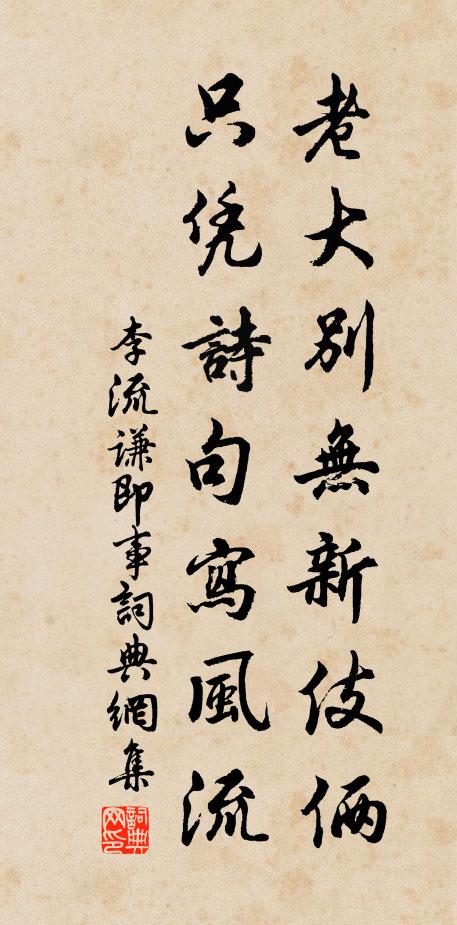 老大別無新伎倆
只凭詩句寫風流
李流謙即事詞典網集
詞典網印